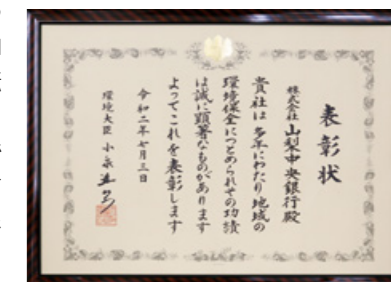 表彰状
株式会社 山梨中央銀行殿
貴社は 多年にわたり 地域の
環境保全につとめられその功績
は誠に顕著なものがあります
よってこれを表彰します
令和二年七月三日
環境大臣 小泉